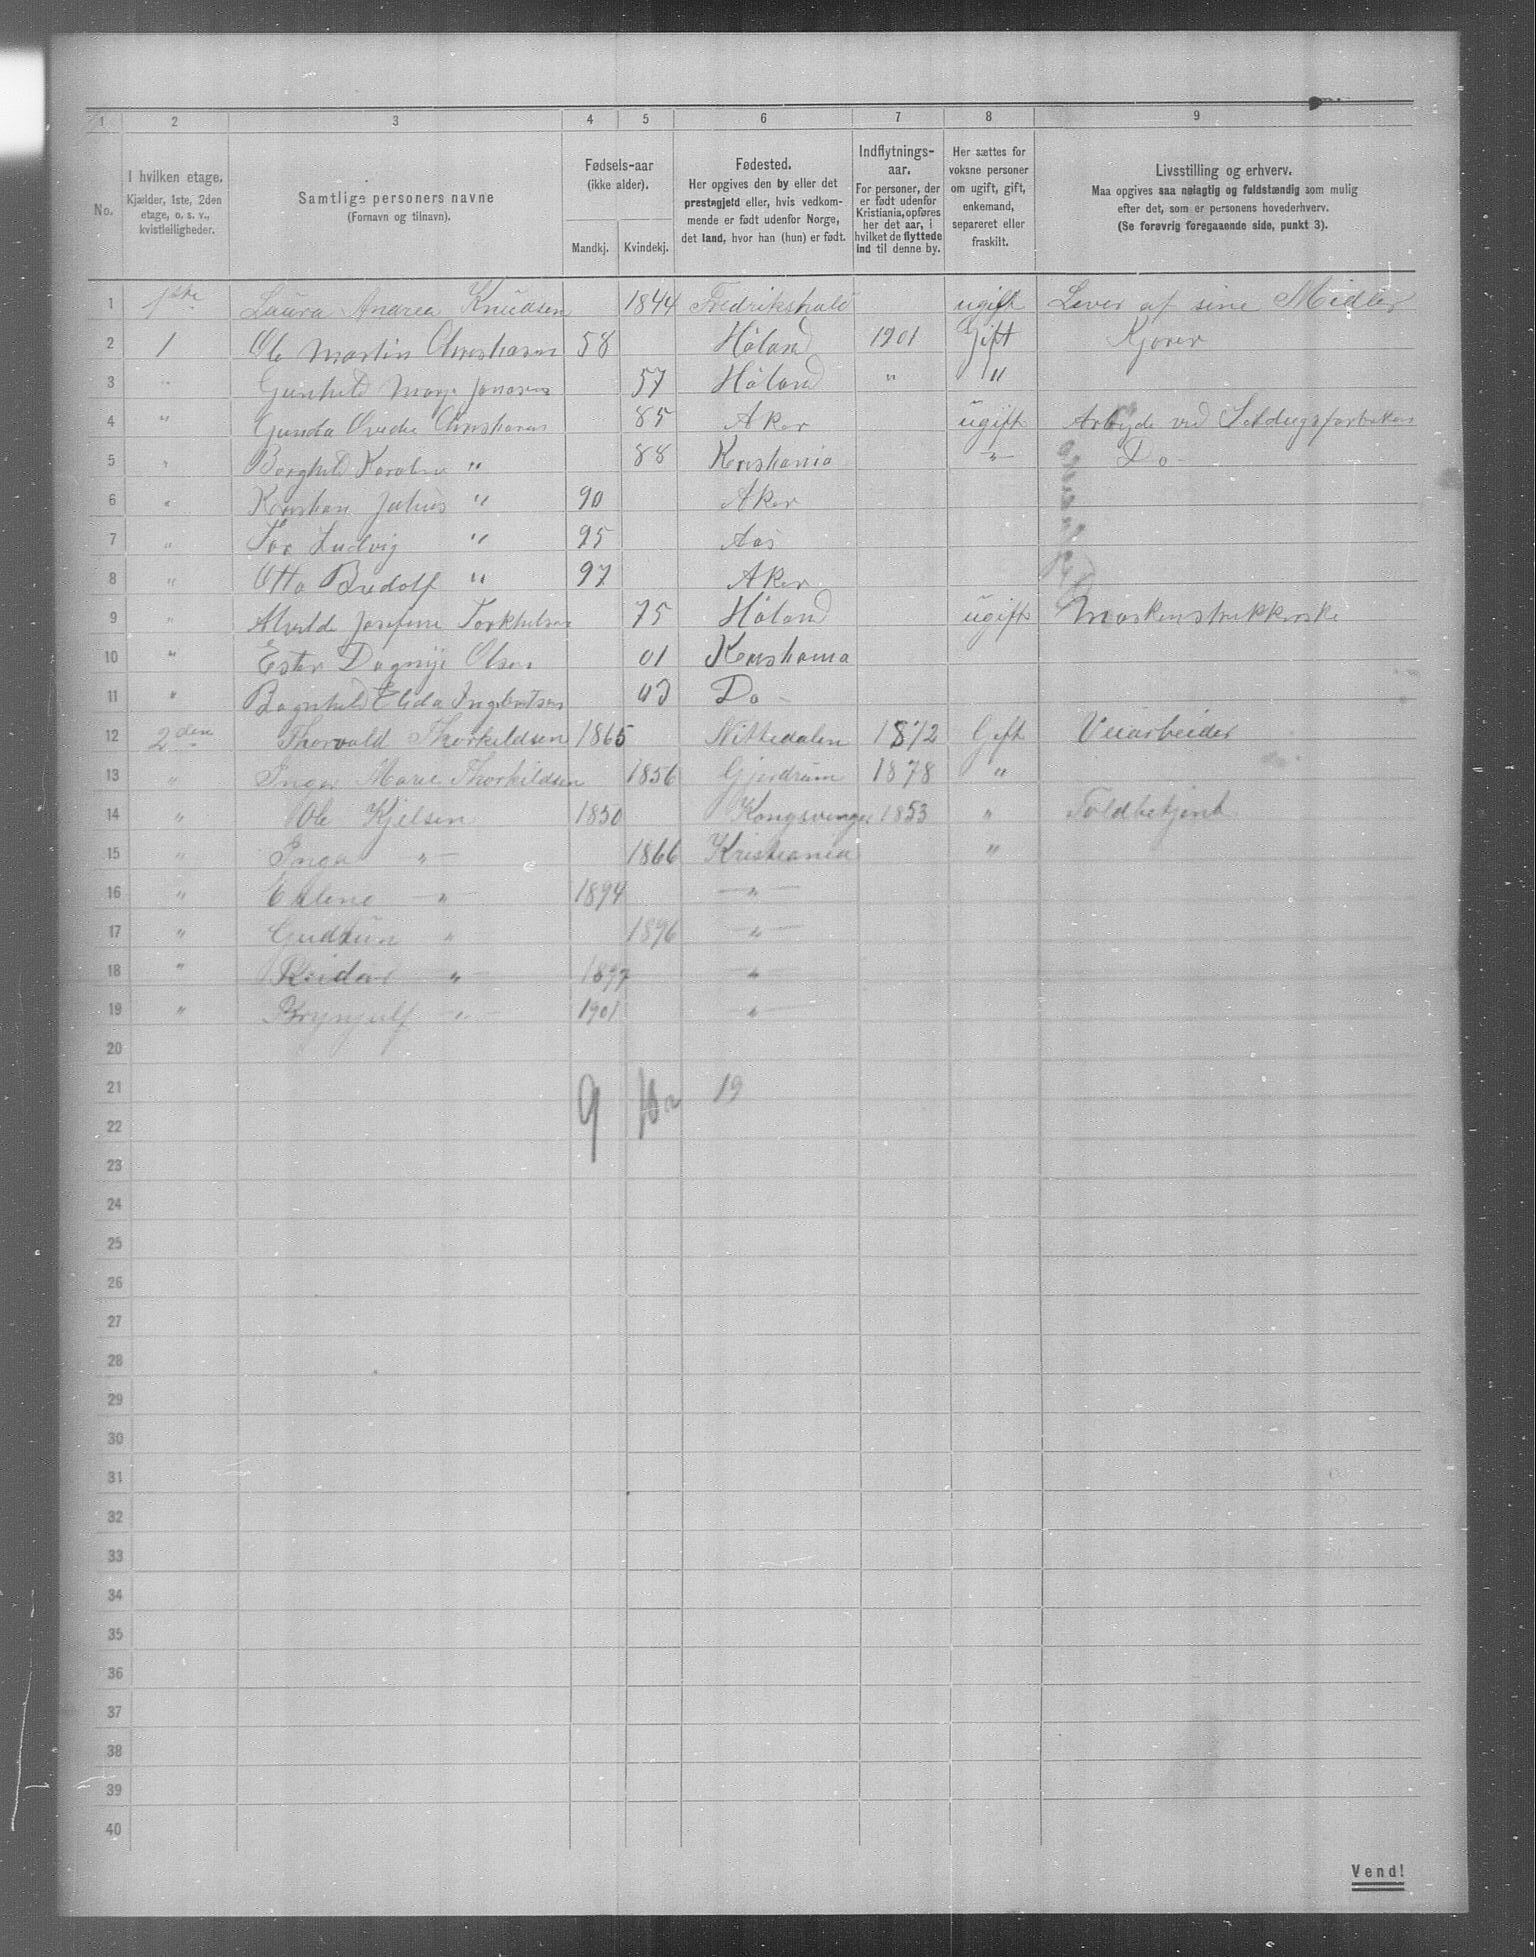 1 2 3 4 5 6 7 8 9
No.
I hvilken etage.
Kjælder, 1ste, 2den
etage, o. s. v.,
kvistleiligheder.
Samtlige personers navne
(Fornavn og tilnavn).
Fødsels-aar
(ikke alder).
Mandkj. Kvindekj.
Fødested.
Her opgives den by eller det
prestegjeld eller, hvis vedkom-
mende er født udenfor Norge,
det land, hvor han (hun) er født.
Indflytnings-
aar.
For personer, der
er født udenfor
Kristiania, opføres
her det aar, i
hvilket de flyttede
ind til denne by.
Her sættes for
voksne personer
om ugift, gift,
enkemand,
separeret eller
fraskilt.
Livsstilling og erhverv.
Maa opgives saa nøiagtig og fuldstændig som mulig
efter det, som er personens hovederhverv.
(Se forøvrig foregaaende side, punkt 3).
1 1ste Laura Andrea Knudsen 1844 Fredrikshald ugift Lever af sine Midler
2 1 Ole Martin Christiansen 58 Høland 1901 Gift Kjører
3 " Gunhild Jonasen 57 Høland " "
4 " Gunda Christiansen 85 Aker ugift Arbejde ved
5 " Borghild Karoline " 88 Kristiania " Do
6 " Kristian Julius " 90 Aker
7 " Ludvig " 95 Aas
8 " Otto " 97 Aker
9 " Alvilde Josefine Torkhelsen 75 Høland ugift
10 " Ester Dagny Olsen 01 Kristiania
11 " Elida Ingebretsen Do
12 2den Thorvald Thorkildsen 1865 Nittedalen 1872 Gift Veiarbeider
13 " Inger Marie Thorkildsen 1856 Gjerdrum 1878 "
14 " Ole Kjelsen 1850 Kongsvinger 1853 " Toldbetjent
15 " Inga " 1866 Kristiania "
16 " " 1894 "
17 " Gudrun " 1896 "
18 " Reidar " 1897 "
19 " Brynjulf " 1901 "
20
21 9 10 19
22
23
24
25
26
27
28
29
30
31
32
33
34
35
36
37
38
39
40
Vend!